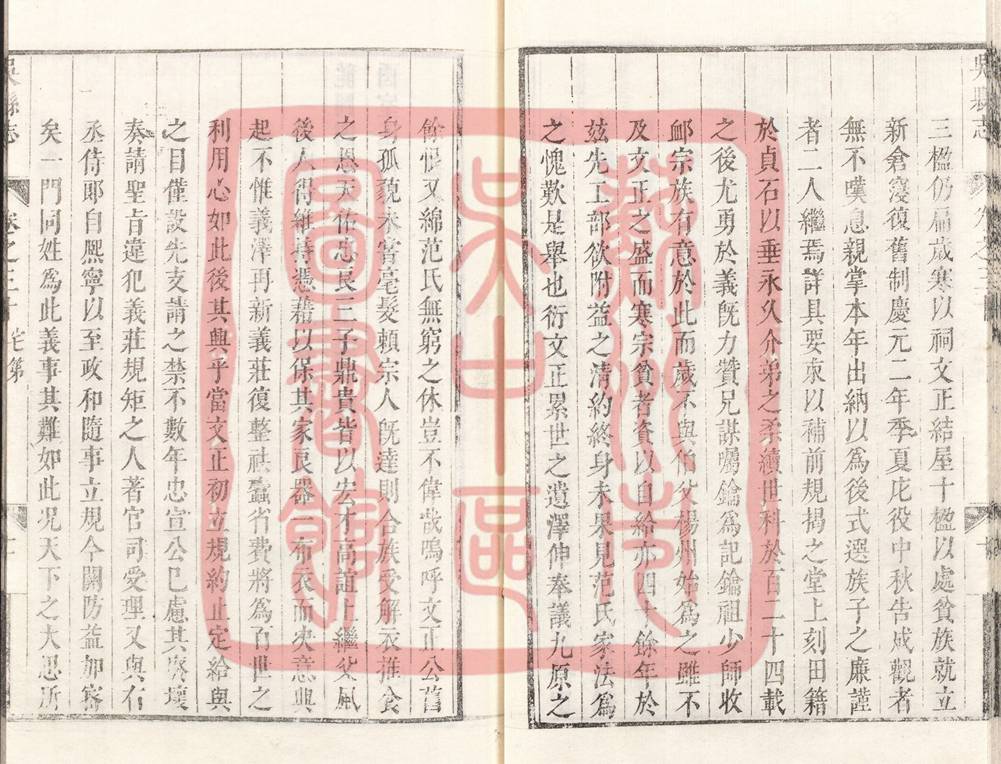 吳縣志
三楹仍扁歲寒以祠文正結屋十楹以處貧族就立
新倉寖復舊制慶元二年季夏庀役中秋告成觀者
無不嘆息親掌本年出納以為後式選族子之廉謹
者二人繼焉詳具要束以補前規揭之堂上刻田籍
於貞石以垂永久介弟之柔續世科於百二十四載
之後尤勇於義既力贊兄謀囑鑰為記鑰祖少師收
䘏宗族有意於此而歲不與伯父楊州始為之雖不
及文正之盛而寒宗貧者資以自給亦四十餘年於
茲先工部欲附益之清約終身未果見范氏家法為
之愧歎是舉也衍文正累世之遺澤伸奉議九原之
餘恨又綿范氏無窮之休豈不偉哉嗚呼文正公舊
身孤藐未嘗毫髮賴宗人既達則合族受解衣推食
之恩天佑忠良三子鼎貴皆以宏才高誼上繼父風
後人得維持憑藉以保其家良器一布衣而決意興
起不惟義澤再新義莊復整祛蠹省費將為百世之
利用心如此後其興乎當文正初立規約止定給與
之目僅設先支請之禁不數年忠宣公已慮其廢壞
奏請聖旨違犯義莊規矩之人著官司受理又與右
丞侍郎自熙寧以至政和隨事立規今關防益加密
矣一門同姓為此義事其難如此況天下之大思所
吳縣志 卷之三十 宅第
蘇州市
吳中區
圖書館